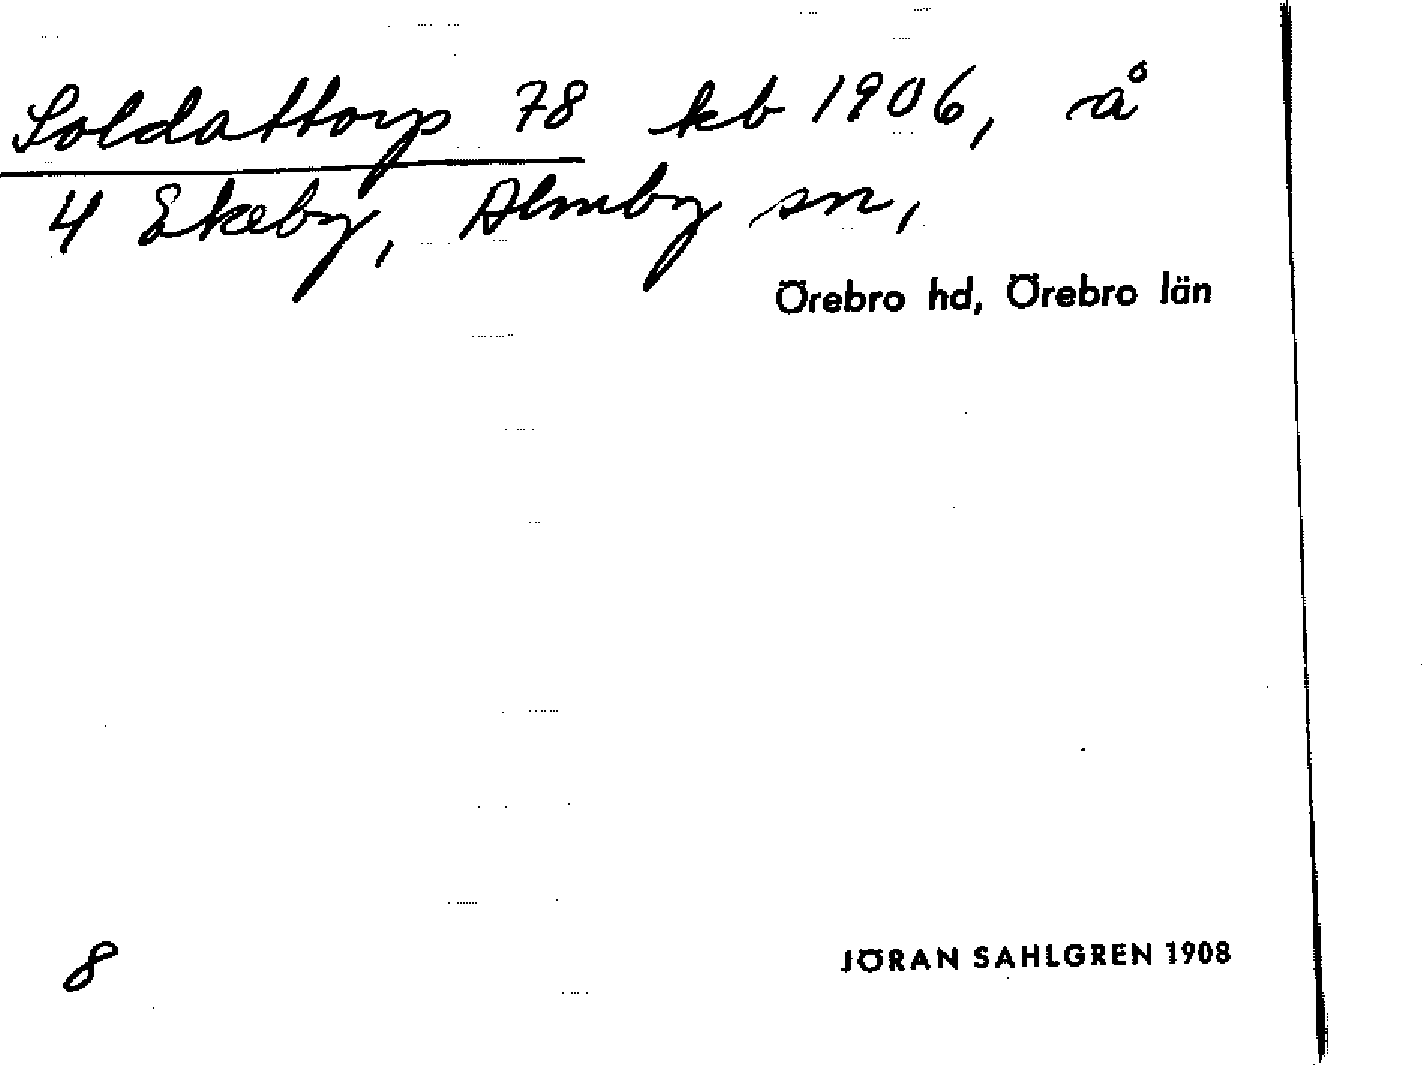 Soldattorp 78 kb 1906, å
4 Ekeby, Almby sn,
Örebro hd, Örebro län
8
JÖRAN SAHLGREN 1908